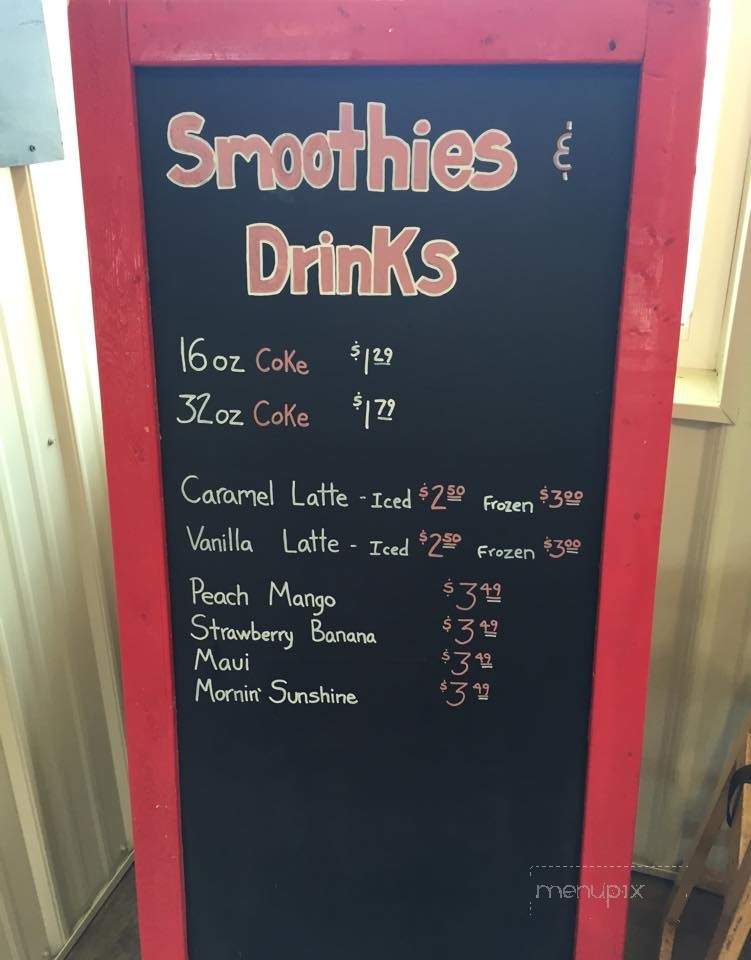 Smoothies &
Drinks
16 oz Coke $1.29
32 oz Coke $1.79
Caramel Latte - Iced $2.50 Frozen $3.00
Vanilla Latte - Iced $2.50 Frozen $3.00
Peach Mango $3.49
Strawberry Banana $3.49
Maui $3.49
Mornin' Sunshine $3.49
menupix